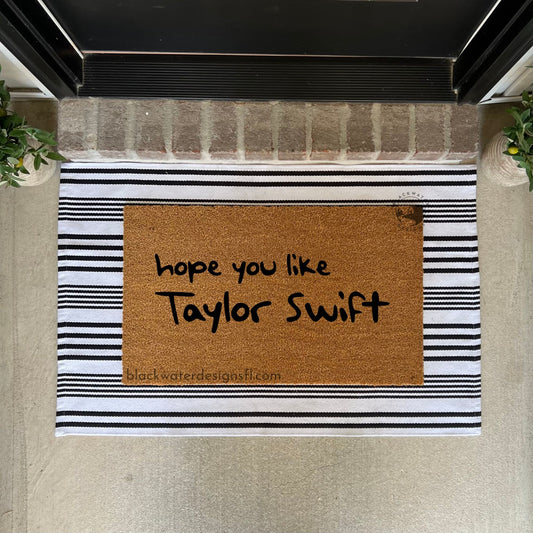 hope you like
Taylor Swift
blackwaterdesignsfl.com